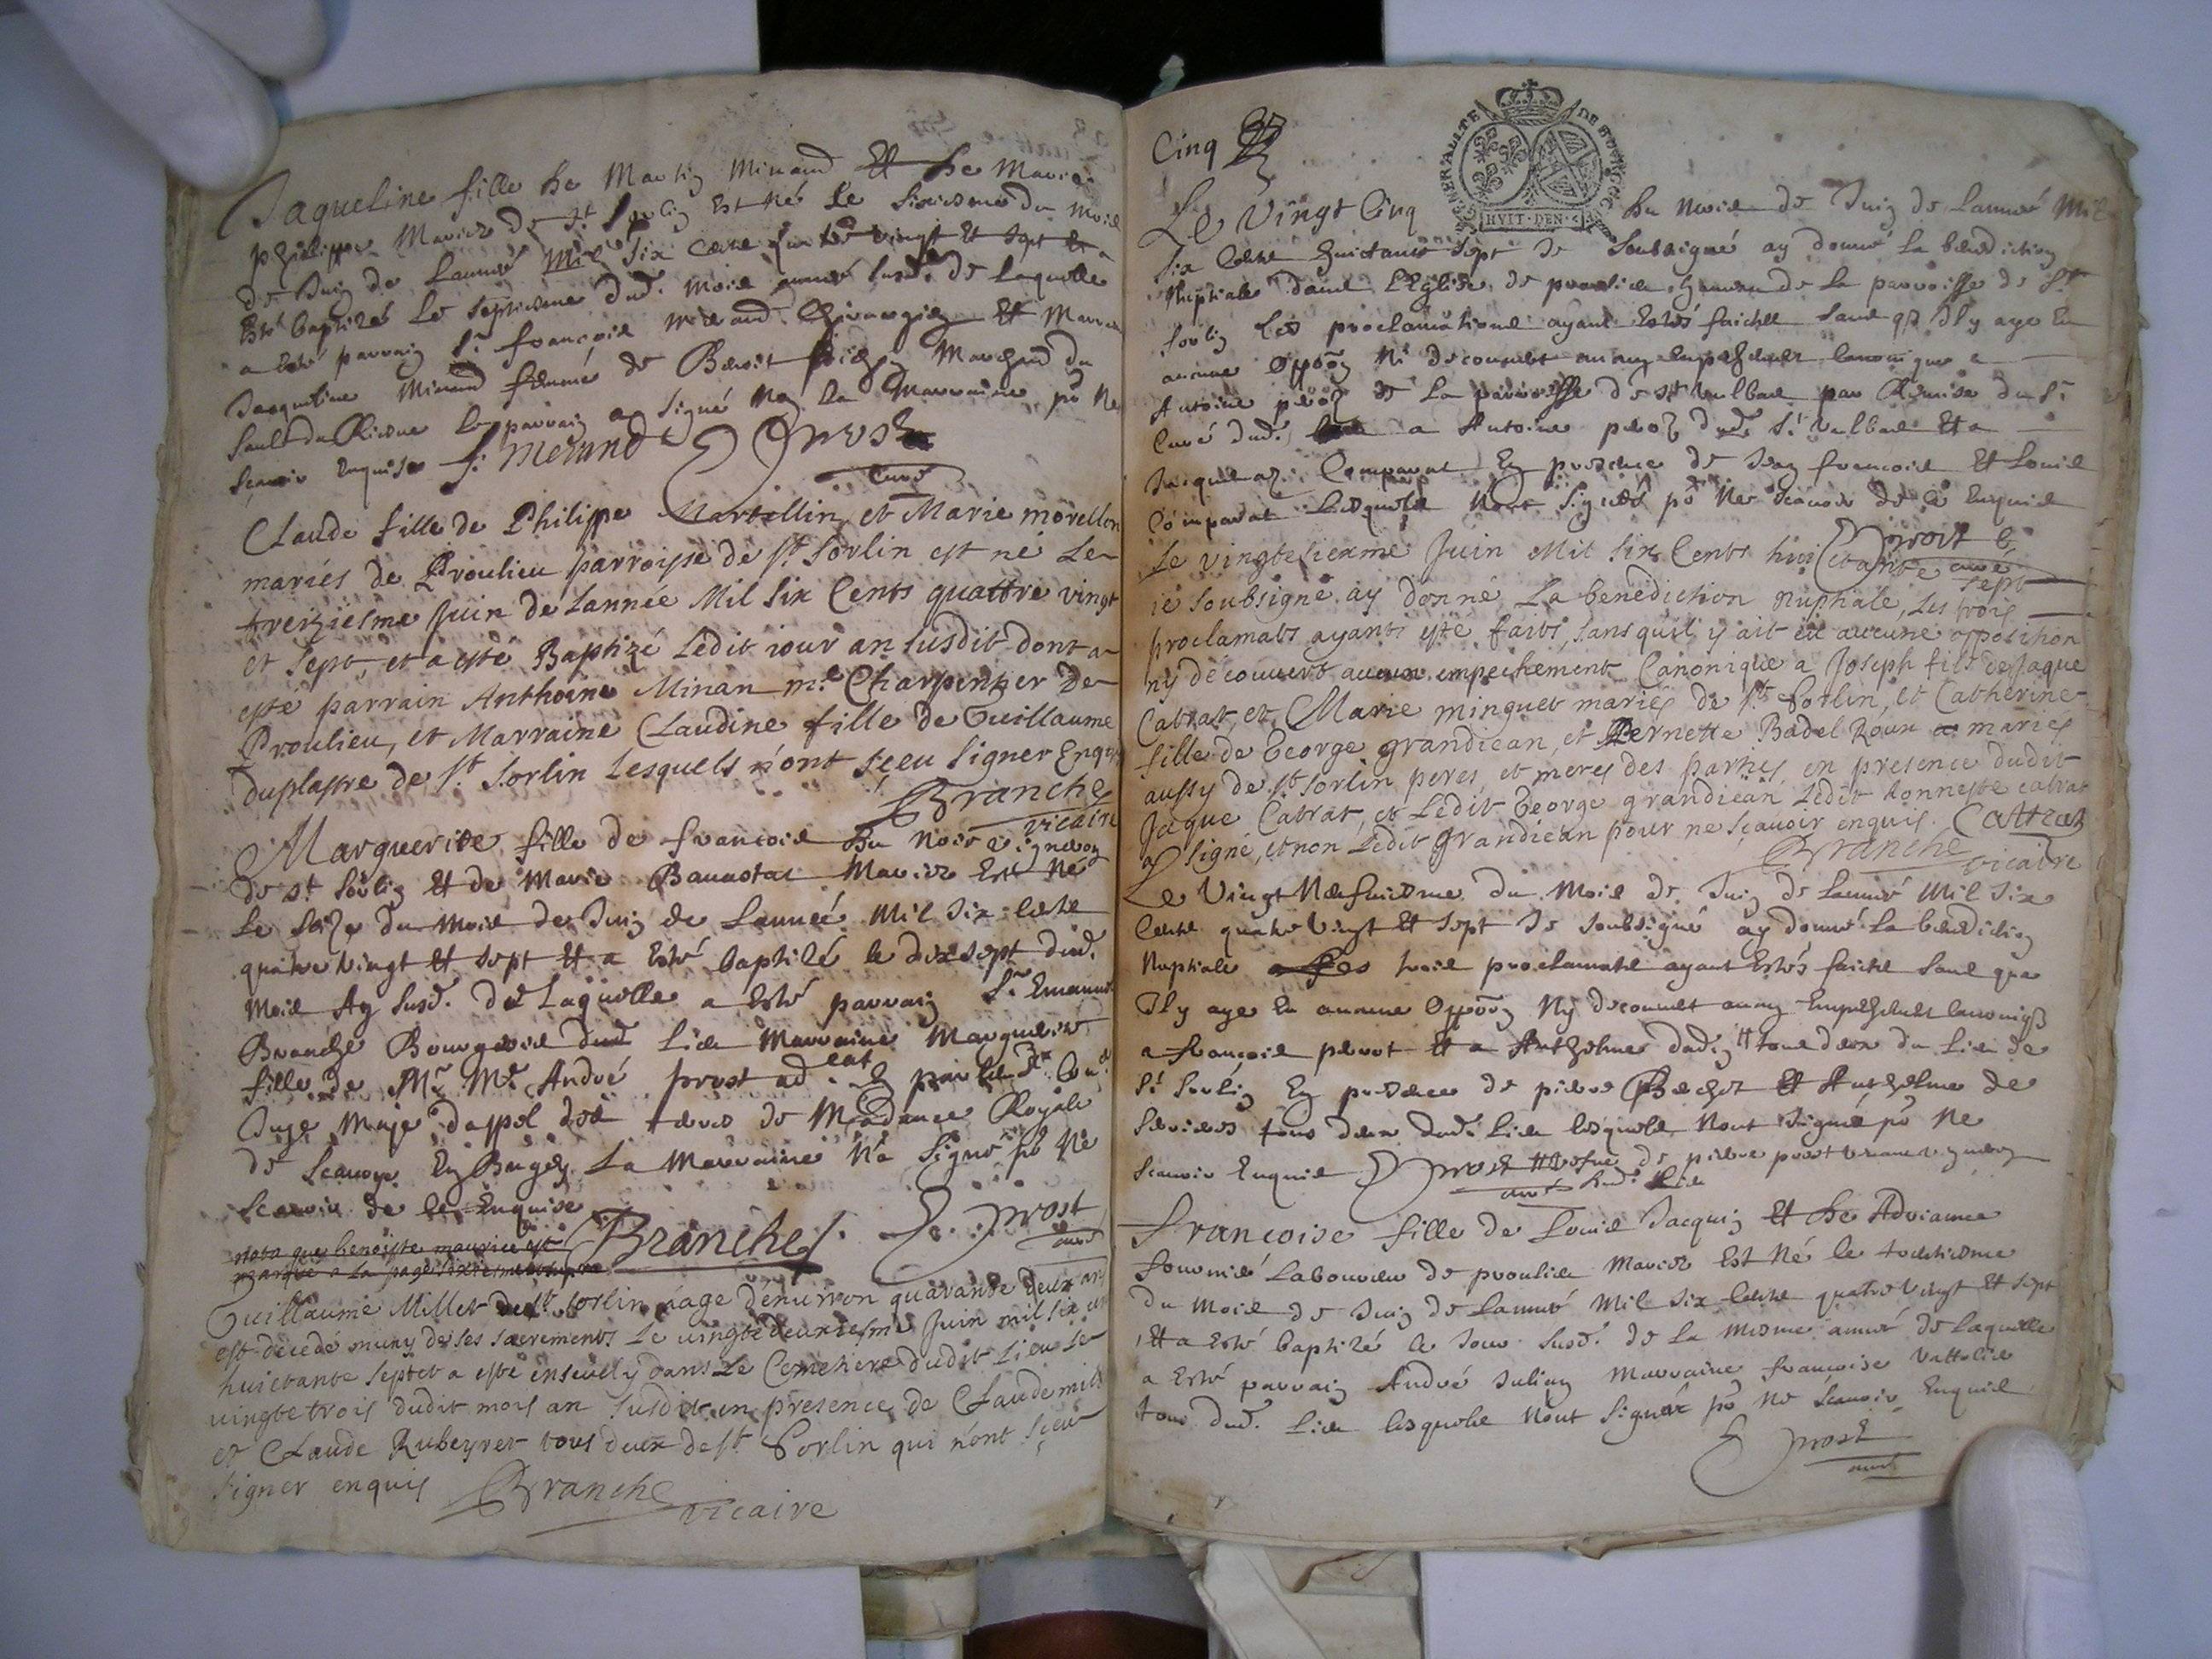 Jaqueline fille de Martin Minand Et de Marie
philippe Mariez de St Sorlin Est née le sixiesme du mois
de Juin de Lannée Mil six cent quatre vingt Et sept Et a
Esté baptizée Le septiesme dud. mois année susd. de laquelle
a Esté parrain Sr françois merand Chirurgien Et Marraine
Jaqueline Minand femme de Benoit Marchand du
Sault du Rhosne Le parrain a signé Non La Marraine po Ne
scavoir Enquise f. merand Prost
curé
Claude fille de Philippe Martellin, et Marie morellon
mariés de Proulieu parroisse de St Sorlin est né Le
treiziesme Juin de Lannée Mil Six Cents quattre vingt
et sept, et a esté Baptizé Ledit jour an susdit dont a
esté parrain Anthoine Minan me Charpentier De
Proulieu, et Marraine Claudine fille de Guillaume
duplastre de St Sorlin Lesquels n'ont sceu signer Enquis
Branche
vicaire
Marguerite fille de françois Du Noir vigneron
de St Sorlin Et de Marie Mariez Est Né
Le seize du mois de Juin de Lannée Mil six cent
quatre vingt Et sept Et a Esté baptizé le dix sept dud.
Mois An susd. de Laquelle a Esté parrain Sr Emanuel
Branche Bourgeois dud Lieu Marraine Marguerite
fille de Mr Me André prost advocat En parlement
Juge Maje dappel des terres de Madame Royale
de Scavoye En Bugey La Marraine N'a Signé po Ne
Scavoir de ce Enquise
nota que benoiste maurice est Branche Prost
marqué a la page curé
Guillaume Millet de St Sorlin aagé denuiron quarante deux ans
est décédé muny de ses sacrements Le vingtedeuxiesme Juin mil six cent
huictante sept et a esté enseuely dans Le Cemetiere dudit Lieu Le
vingtetrois dudit mois an susdit en presence de Claude millet
et Claude Rubeyret tous deux de St Sorlin qui n'ont sceu
signer enquis Branche
vicaire
Cinq
GENERALITE DE BOURGOG
HVIT · DEN ·
Le Vingt Cinq du Mois de Juin de Lannée Mil
six Cents huictante sept Je Soubsigné ay donné La benediction
Nuptiale dans LEglise de proulieu de la parroisse de St
Sorlin Les proclamations ayant Estés faictes sans qu Il y aye Eu
aucune Oppoon Ni decouvert aucun Empeschement Canonique a
Antoine de La parroisse de St Vulbas par Remise du Sr
Curé dud. a Antoine dud. St Vulbas Et a
Comparat En presence de Jean francois Et Louis
Comparat Lesquels Nont signés po Ne scavoir de ce Enquis
Prost
curé
Le vingtesiexme Juin Mil Six Cents huictante sept
ie soubsigné ay donné La benediction Nuptiale, Les trois
proclamats ayants esté faits, sans quil y ait eu aucune opposition
ny découuert aucun empechement Canonique a Joseph fils de Jaque
Catrat, et Marie minguet mariés de St Sorlin, et Catherine
fille de George grandiean, et Pernette Badel Roux mariés
aussy de St Sorlin peres, et meres des parties en presence dudit
Jaque Catrat, et Ledit George grandiean Ledit honneste catrat
a signé, et non Ledit Grandiean pour ne sçauoir enquis. Cattrat
Branche
vicaire
Le Vingt Neufuiesme du Mois de Juin de Lannée Mil six
Cents quatre vingt Et sept Je soubsigné ay donné La benediction
Nuptiale Les trois proclamats ayant Estés faicts sans que
Il y aye Eu aucune Oppoon Ny decouvert aucun Empeschement
a francois perrot Et a Anthelme tt tous deux du Lieu de
St Sorlin En presence de pierre Et Anthelme de
tous deux dud. Lieu lesquels Nont signé po Ne
scavoir Enquis Prost tt vefve de pierre prost vigneron
curé dud. Lieu
Francoise fille de Louis Jacquin Et De Adrianne
fournié Laboureur de proulieu Mariez Est Né le trentiesme
du mois de Juin de Lannée Mil six Cents quatre vingt Et sept
Et a Esté baptizé le Jour susd. de la mesme année de Laquelle
a Esté parrain André Jullien Marraine francoise
tous dud. Lieu lesquels Nont signé po Ne Scavoir Enquis
Prost
curé